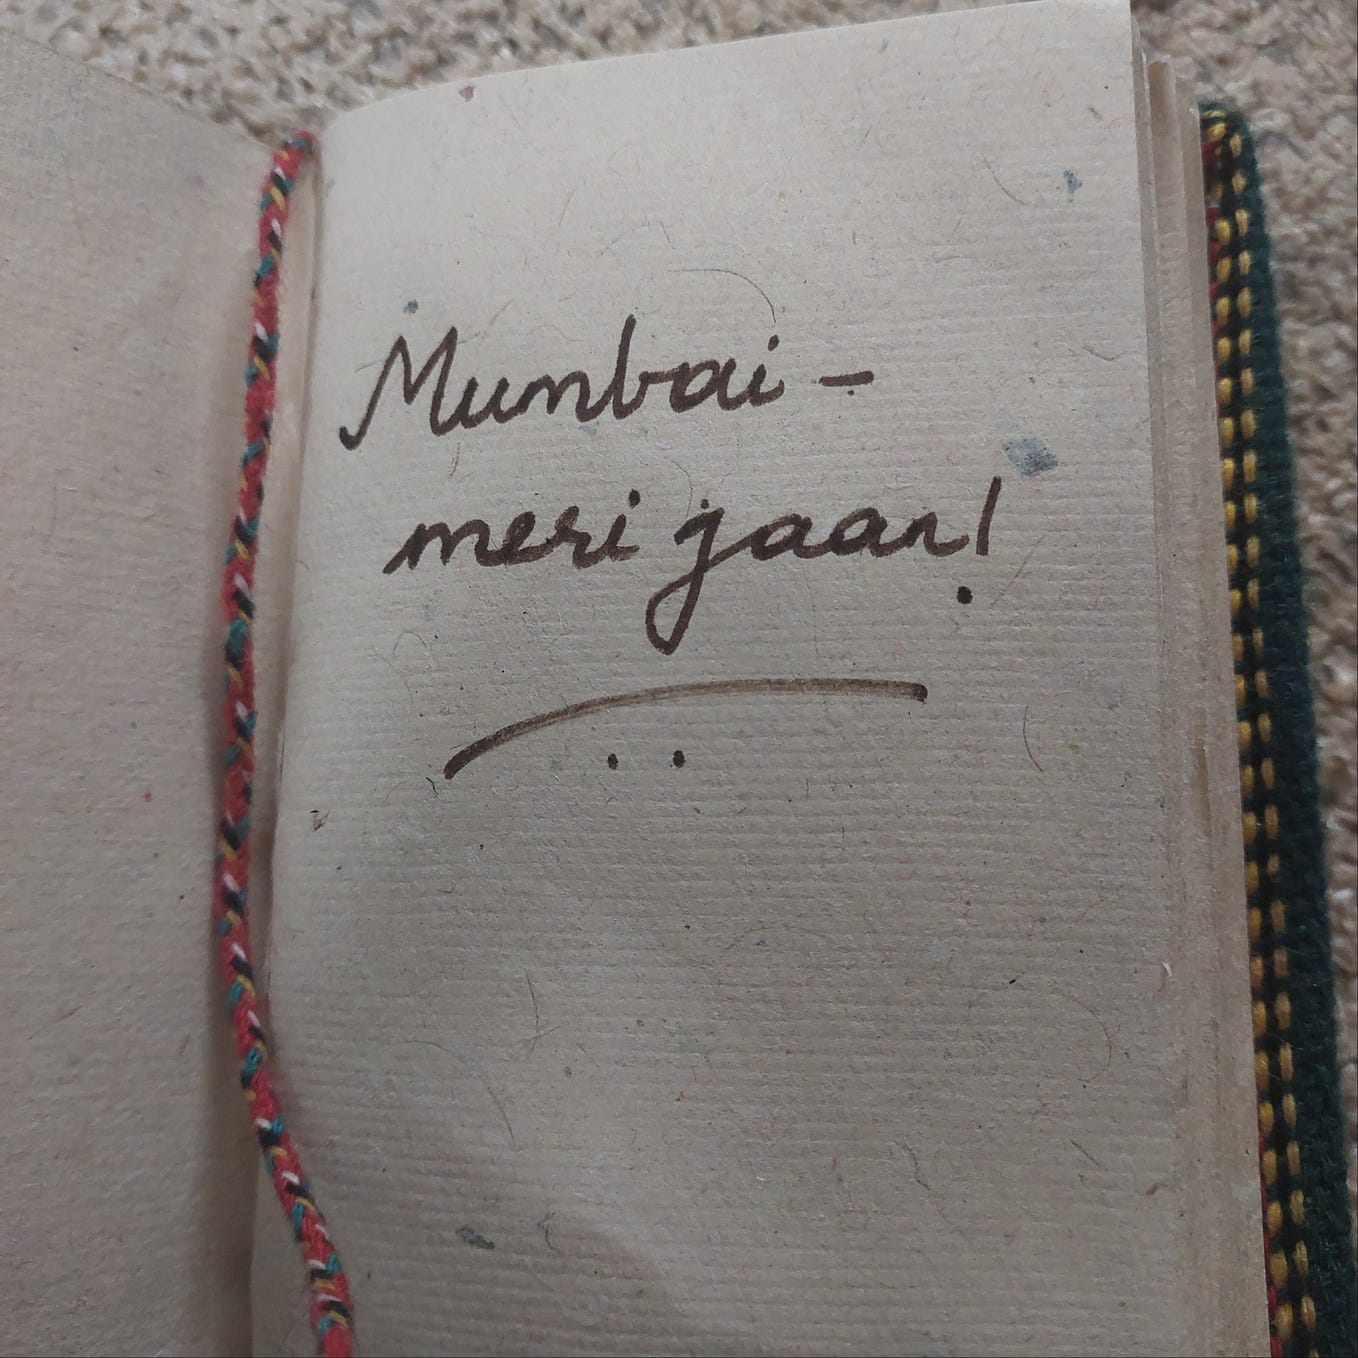 Mumbai -
meri jaan!